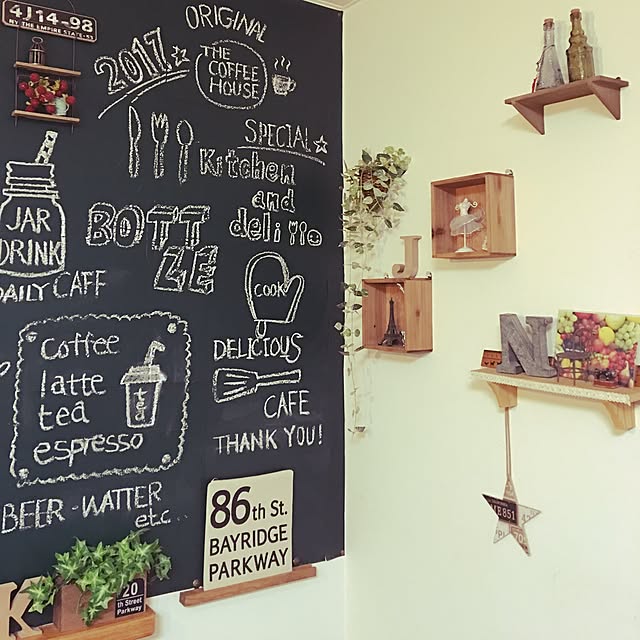 4J14-98
NY THE EMPIRE STATE
ORIGINAL
2017
THE
COFFEE
HOUSE
SPECIAL
Kitchen
and
deli
JAR
DRINK
BOTT
LE
DAILY CAFF
COOK
Coffee
latte
tea
espresso
DELICIOUS
CAFE
THANK YOU!
BEER-WATTER
etc..
86th St.
BAYRIDGE
PARKWAY
20
th Street
Parkway
K
J
N
E851